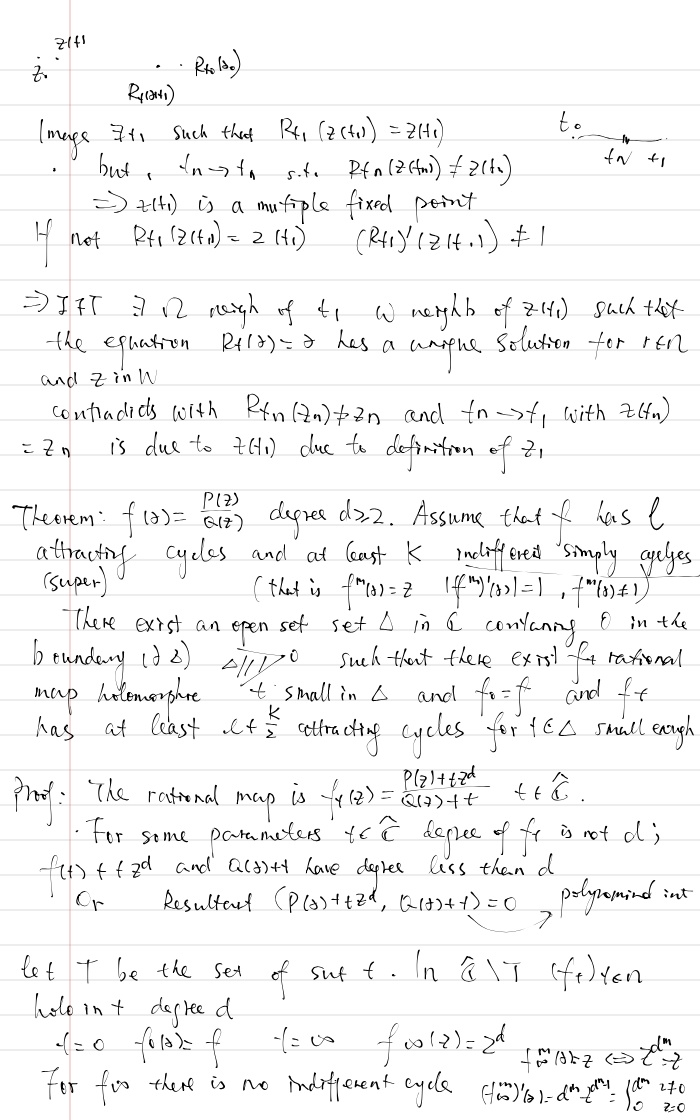 z(t)
z. R_{t_0}(z_0)
R_t(z(t))
Image ∃ t_1 such that R_{t_1}(z(t_1)) = z(t_1)
t_0
but, t_n → t_1 s.t. R_{t_n}(z(t_n)) ≠ z(t_n)
t_n t_1
⇒ z(t_1) is a mutiple fixed point
If not R_{t_1}(z(t_1)) = z(t_1) (R_{t_1})'(z(t_1)) ≠ 1
⇒ IFT ∃ Ω neigh of t_1 W neighb of z(t_1) such that
the equation R_t(z) = z has a unique solution for t∈Ω
and z in W
contradicts with R_{t_n}(z_n) ≠ z_n and t_n → t_1 with z(t_n)
= z_n is due to z(t_1) due to definition of z_1
Theorem: f(z) = P(z)/Q(z) degree d ≥ 2. Assume that f has l
attracting cycles and at least K indifferent simply cycles
(super) (that is f^m(z) = z |(f^m)'(z)| = 1, f^m(z) ≠ 1)
There exist an open set set Δ in C containing 0 in the
boundary (∂Δ) Δ 0 such that there exist f_t rational
map holomorphic t small in Δ and f_0 = f and f_t
has at least l + K/2 attracting cycles for t∈Δ small enough
Proof: The rational map is f_t(z) = (P(z)+tz^d)/(Q(z)+t) t∈Ĉ.
· For some parameters t∈Ĉ degree of f_t is not d;
f(t) + tz^d and Q(z)+t have degree less than d
Or Resultant (P(z)+tz^d, Q(z)+t) = 0 polynomial in t
let T be the set of such t. In Ĉ\T (f_t)_{t∈Ω}
holo in t degree d
t=0 f_0(z) = f t=∞ f_∞(z) = z^d f_∞^m(z) = z ⇔ z^{d^m} = z
For f_∞ there is no indifferent cycle (f_∞^m)'(z) = d^m z^{d^m-1} = { d^m z≠0
0 z=0